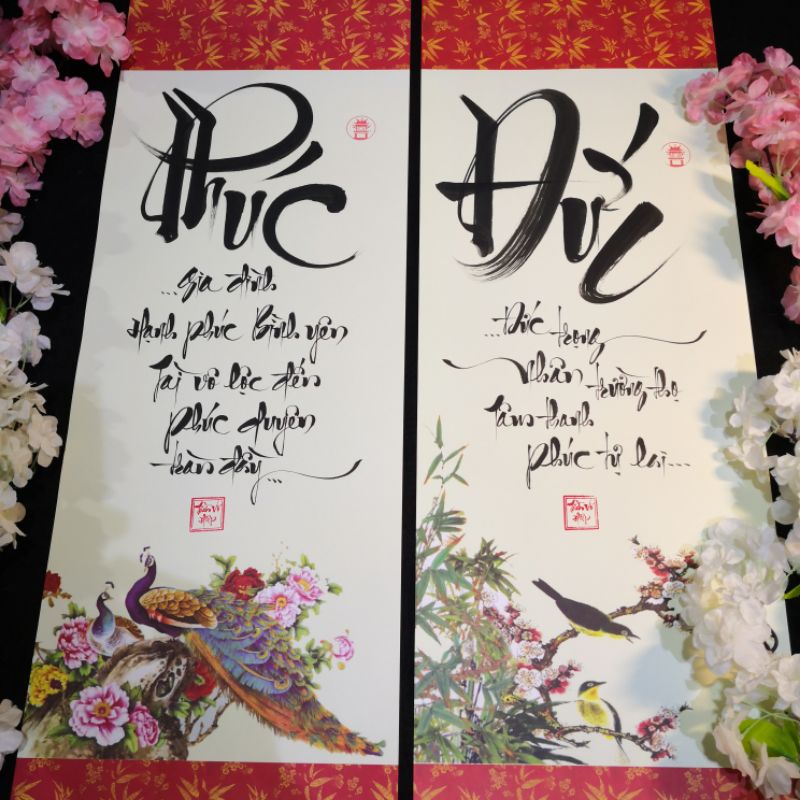 Phúc
...Gia đình
Hạnh phúc Bình yên
Tài vô lộc đến
phúc duyên
tràn đầy...
Đức
...Đức trọng
Nhân trường thọ
Tâm thanh
phúc tự lai...